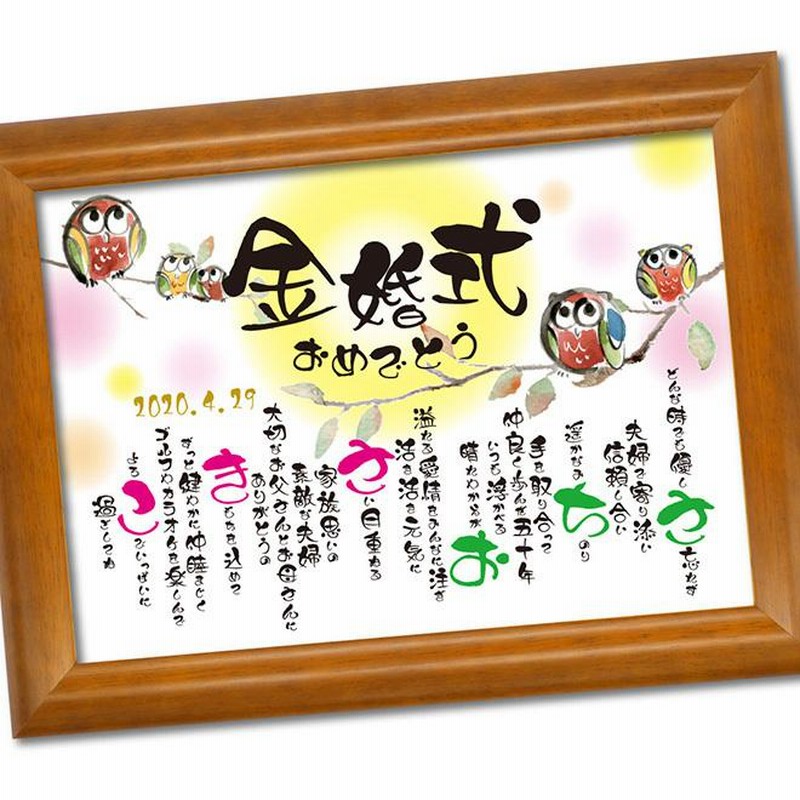 金婚式
おめでとう
2020.4.29
どんな時でも優しさ忘れず
夫婦で寄り添い
信頼し合い
遥かなみちのり
手を取り合って
仲良く歩んだ五十年
いつも浮かべる
晴れやか お
溢れる愛情をみんなに注ぎ
活き活き元気に
さい月重ねる
家族思いの
素敵な夫婦
大切なお父さんとお母さんに
ありがとうの
きもちを込めて
ずっと健やかに仲睦まじく
ゴルフやカラオケを楽しんで
よろこびいっぱいに
過ごしてね